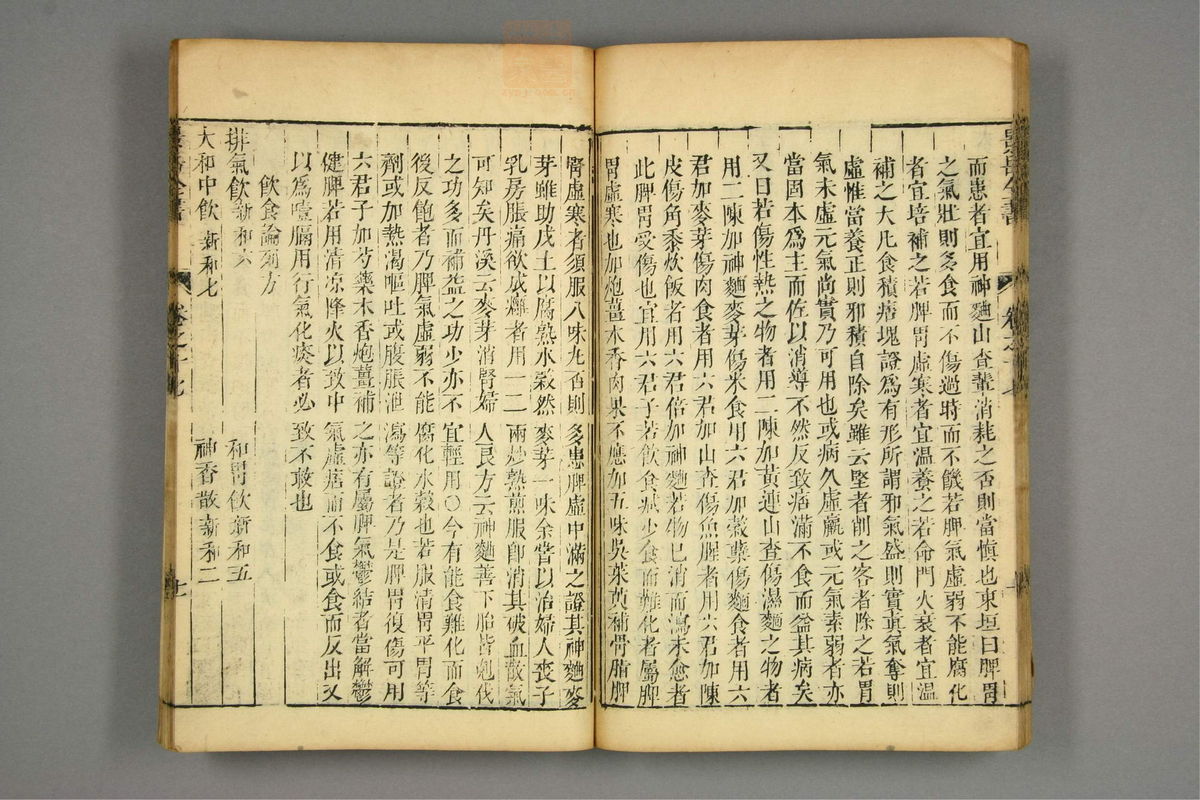 而患者宜用神麯山查輩消耗之否則當慎也東垣曰脾胃
之氣壯則多食而不傷過時而不饑若脾氣虛弱不能腐化
者宜培補之若脾胃虛寒者宜溫養之若命門火衰者宜溫
補之大凡食積痞塊證爲有形所謂邪氣盛則實眞氣奪則
虛惟當養正則邪積自除矣雖云堅者削之客者除之若胃
氣未虛元氣尚實乃可用也或病久虛羸或元氣素弱者亦
當固本爲主而佐以消導不然反致痞滿不食而益其病矣
又曰若傷性熱之物者用二陳加黃連山查傷濕麵之物者
用二陳加神麯麥芽傷米食用六君加穀糵傷麵食者用六
君加麥芽傷肉食者用六君加山查傷魚腥者用六君加陳
皮傷角黍炊飯者用六君倍加神麯若物已消而瀉未愈者
此脾胃受傷也宜用六君子若飲食減少食而難化者屬脾
胃虛寒也加炮薑木香肉果不應加五味吳茱萸補骨脂脾
腎虛寒者須服八味丸否則多患脾虛中滿之證其神麯麥
芽雖助戊土以腐熟水穀然麥芽一味余嘗以治婦人喪子
乳房脹痛欲成癰者用一二兩炒熟煎服卽消其破血散氣
可知矣丹溪云麥芽消腎婦人良方云神麯善下胎皆剋伐
之功多而補益之功少亦不宜輕用○今有能食難化而食
後反飽者乃脾氣虛弱不能腐化水穀也若服清胃平胃等
劑或加熱渴嘔吐或腹脹泄瀉等證者乃是脾胃復傷可用
六君子加芍藥木香炮薑補之亦有屬脾氣鬱結者當解鬱
健脾若用清凉降火以致中氣虛痞而不食或食而反出又
以爲噎膈用行氣化痰者必致不救也
飲食論列方
排氣飲新和六
和胃飲新和五
大和中飲新和七
神香散新和二
景岳全書
卷之十七